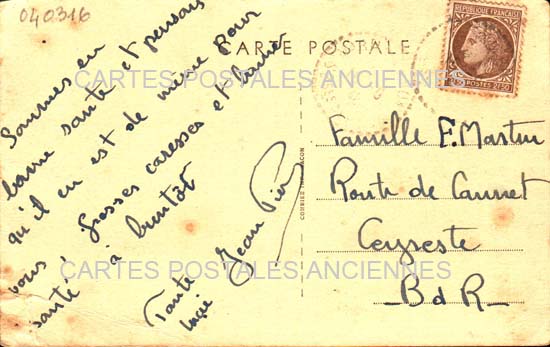 040316
CARTE POSTALE
RÉPUBLIQUE FRANÇAISE
POSTES 2F50
CARTES POSTALES ANCIENNES
Sommes en
bonne santé et pensons
qu'il en est de même pour
vous, grosses caresses et bonne
santé à bientôt
Tante Jean Pierre
Famille F. Martin
Route de Cannet
Ceyreste
- B d R -
COMBIER IMP. MACON
CARTES POSTALES ANCIENNES